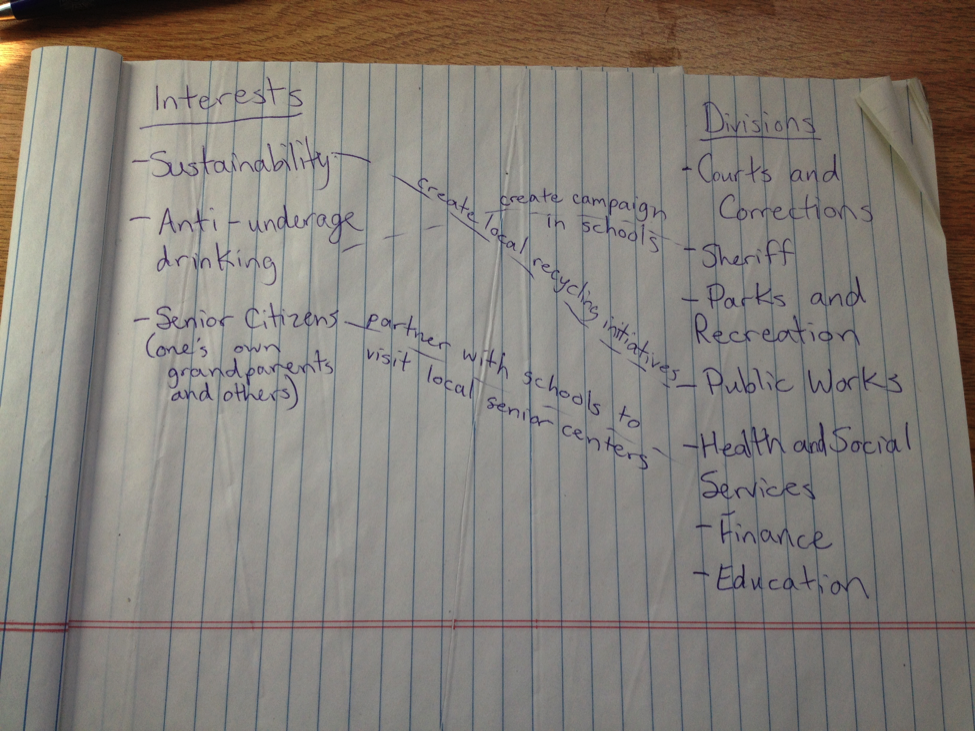 Interests
- Sustainability
- Anti-underage
drinking
- Senior Citizens
(one's own
grandparents
and others)
create local recycling initiatives
create campaign
in schools
partner with schools to
visit local senior centers
Divisions
- Courts and
Corrections
- Sheriff
- Parks and
Recreation
- Public Works
- Health and Social
Services
- Finance
- Education